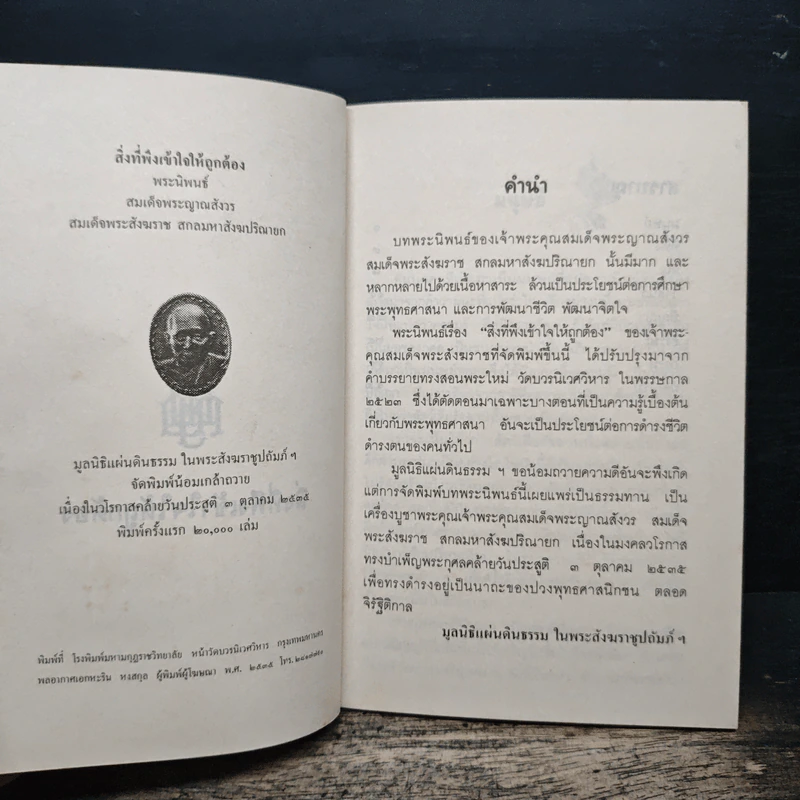 สิ่งที่พึงเข้าใจให้ถูกต้อง
พระนิพนธ์
สมเด็จพระญาณสังวร
สมเด็จพระสังฆราช สกลมหาสังฆปริณายก
มูลนิธิแผ่นดินธรรม ในพระสังฆราชูปถัมภ์ ฯ
จัดพิมพ์น้อมเกล้าถวาย
เนื่องในวโรกาสคล้ายวันประสูติ ๓ ตุลาคม ๒๕๓๕
พิมพ์ครั้งแรก ๒๐,๐๐๐ เล่ม
พิมพ์ที่ โรงพิมพ์มหามกุฏราชวิทยาลัย หน้าวัดบวรนิเวศวิหาร กรุงเทพมหานคร
พลอากาศเอกหะริน หงสกุล ผู้พิมพ์ผู้โฆษณา พ.ศ. ๒๕๓๕ โทร.
คำนำ
บทพระนิพนธ์ของเจ้าพระคุณสมเด็จพระญาณสังวร
สมเด็จพระสังฆราช สกลมหาสังฆปริณายก นั้นมีมาก และ
หลากหลายไปด้วยเนื้อหาสาระ ล้วนเป็นประโยชน์ต่อการศึกษา
พระพุทธศาสนา และการพัฒนาชีวิต พัฒนาจิตใจ
พระนิพนธ์เรื่อง "สิ่งที่พึงเข้าใจให้ถูกต้อง" ของเจ้าพระ-
คุณสมเด็จพระสังฆราชที่จัดพิมพ์ขึ้นนี้ ได้ปรับปรุงมาจาก
คำบรรยายทรงสอนพระใหม่ วัดบวรนิเวศวิหาร ในพรรษกาล
๒๕๒๓ ซึ่งได้ตัดตอนมาเฉพาะบางตอนที่เป็นความรู้เบื้องต้น
เกี่ยวกับพระพุทธศาสนา อันจะเป็นประโยชน์ต่อการดำรงชีวิต
ดำรงตนของคนทั่วไป
มูลนิธิแผ่นดินธรรม ฯ ขอน้อมถวายความดีอันจะพึงเกิด
แต่การจัดพิมพ์บทพระนิพนธ์นี้เผยแพร่เป็นธรรมทาน เป็น
เครื่องบูชาพระคุณเจ้าพระคุณสมเด็จพระญาณสังวร สมเด็จ
พระสังฆราช สกลมหาสังฆปริณายก เนื่องในมงคลวโรกาส
ทรงบำเพ็ญพระกุศลคล้ายวันประสูติ ๓ ตุลาคม ๒๕๓๕
เพื่อทรงดำรงอยู่เป็นนาถะของปวงพุทธศาสนิกชน ตลอด
จิรัฐิติกาล
มูลนิธิแผ่นดินธรรม ในพระสังฆราชูปถัมภ์ ฯ